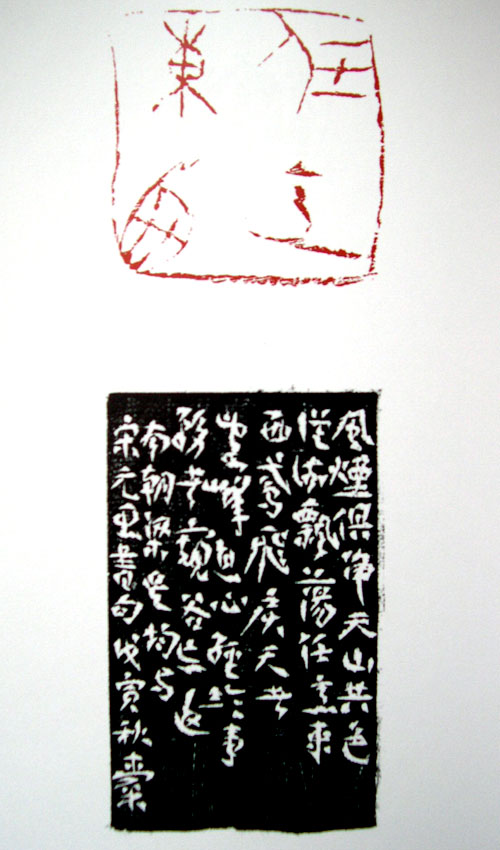 任意
東西
風煙俱淨天山共色
從流飄蕩任意東
西鳶飛戾天者
望峰息心經綸事
務者窺谷忘返
南朝梁吳均与
宋元思書句戊寅秋